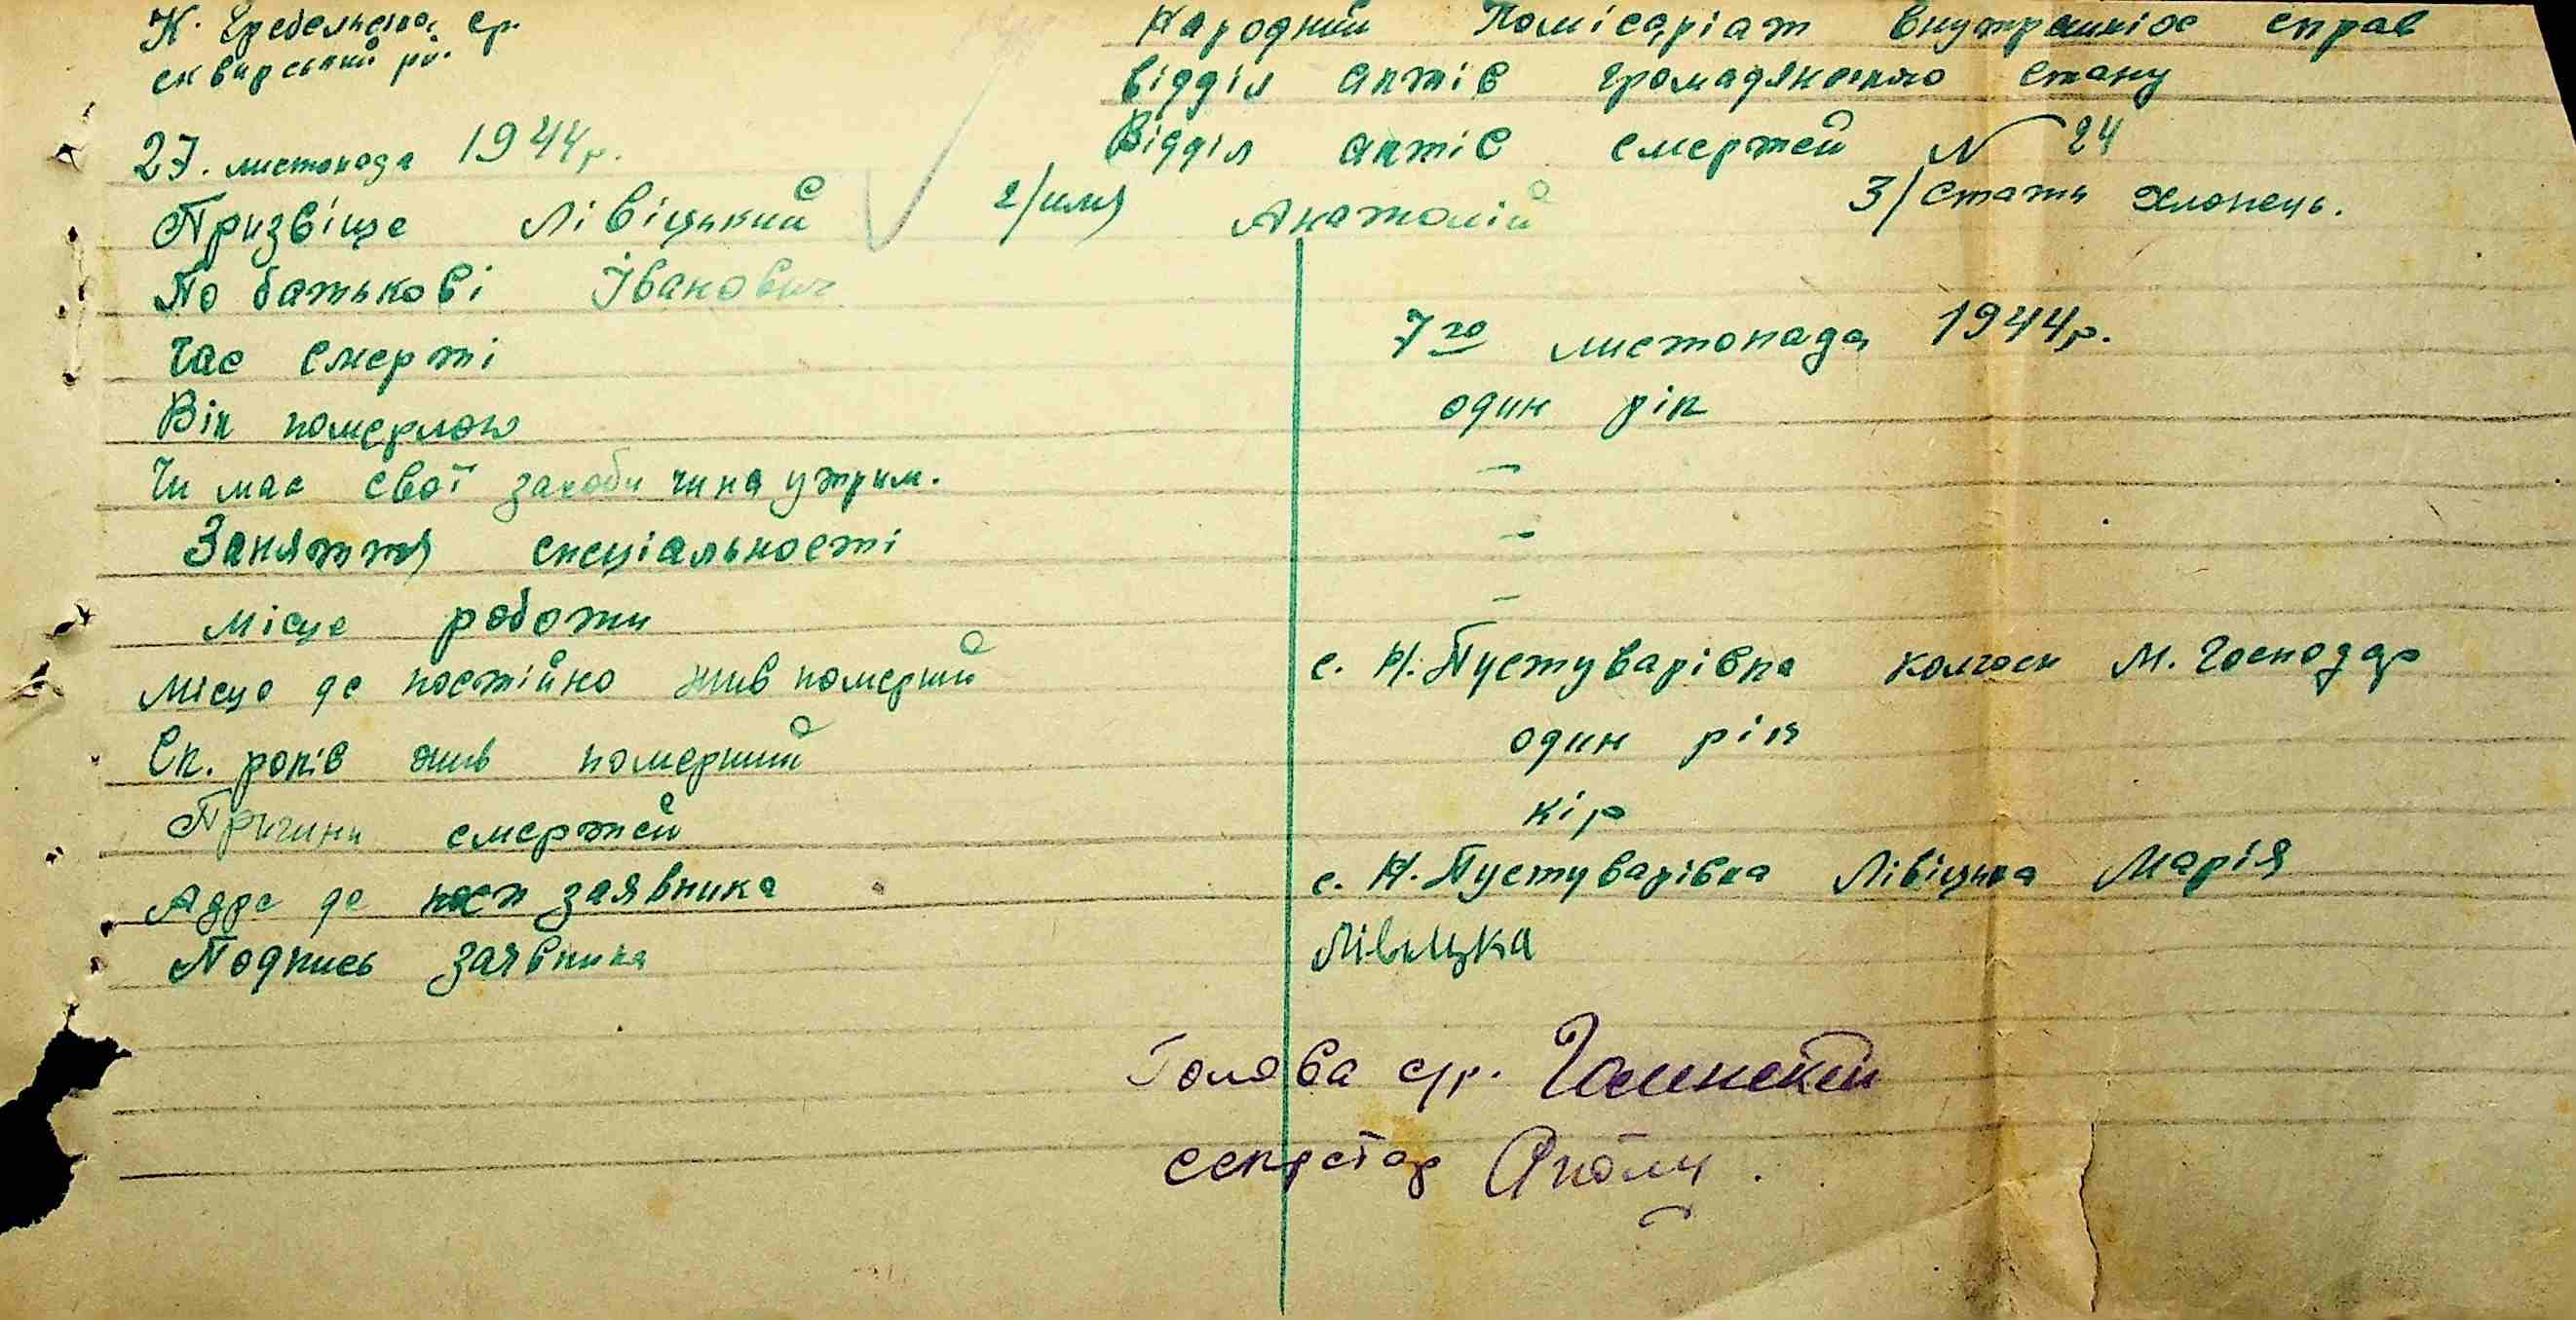 К. Гребельська ср.
сквирський рй.
Народний Комісаріат внутрішніх справ
Відділ актів громадянсько стану
27. листопада 1944р.
Відділ актів смертей N 24
Призвіще Лівіцький 2/ имя Анатолій 3/ стать хлопець.
По батькові Іванович
Час смерті 7го листопада 1944р.
Вік померлого один рік
Чи має свої засоби чи на утрим. –
Заняття спеціальності –
Місце роботи –
Місце де постійно жив померший с. Н. Пустуварівка колгосп М. Господар
Ск. років жив померший один рік
Причини смертей кір
Адре де заявника с. Н. Пустуварівка Лівіцька Марія
Подпись заявника Лівицка
Голова ср.
секретар